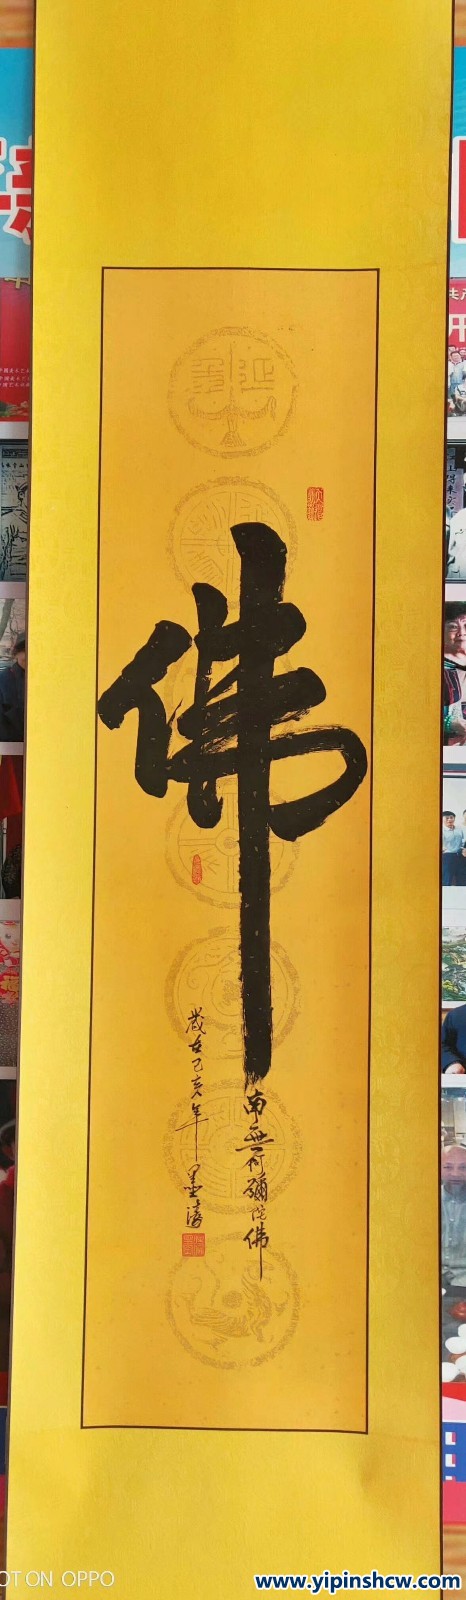 佛
南無阿彌陀佛
歲在己亥年
墨濤
OT ON OPPO
www.yipinshcw.com